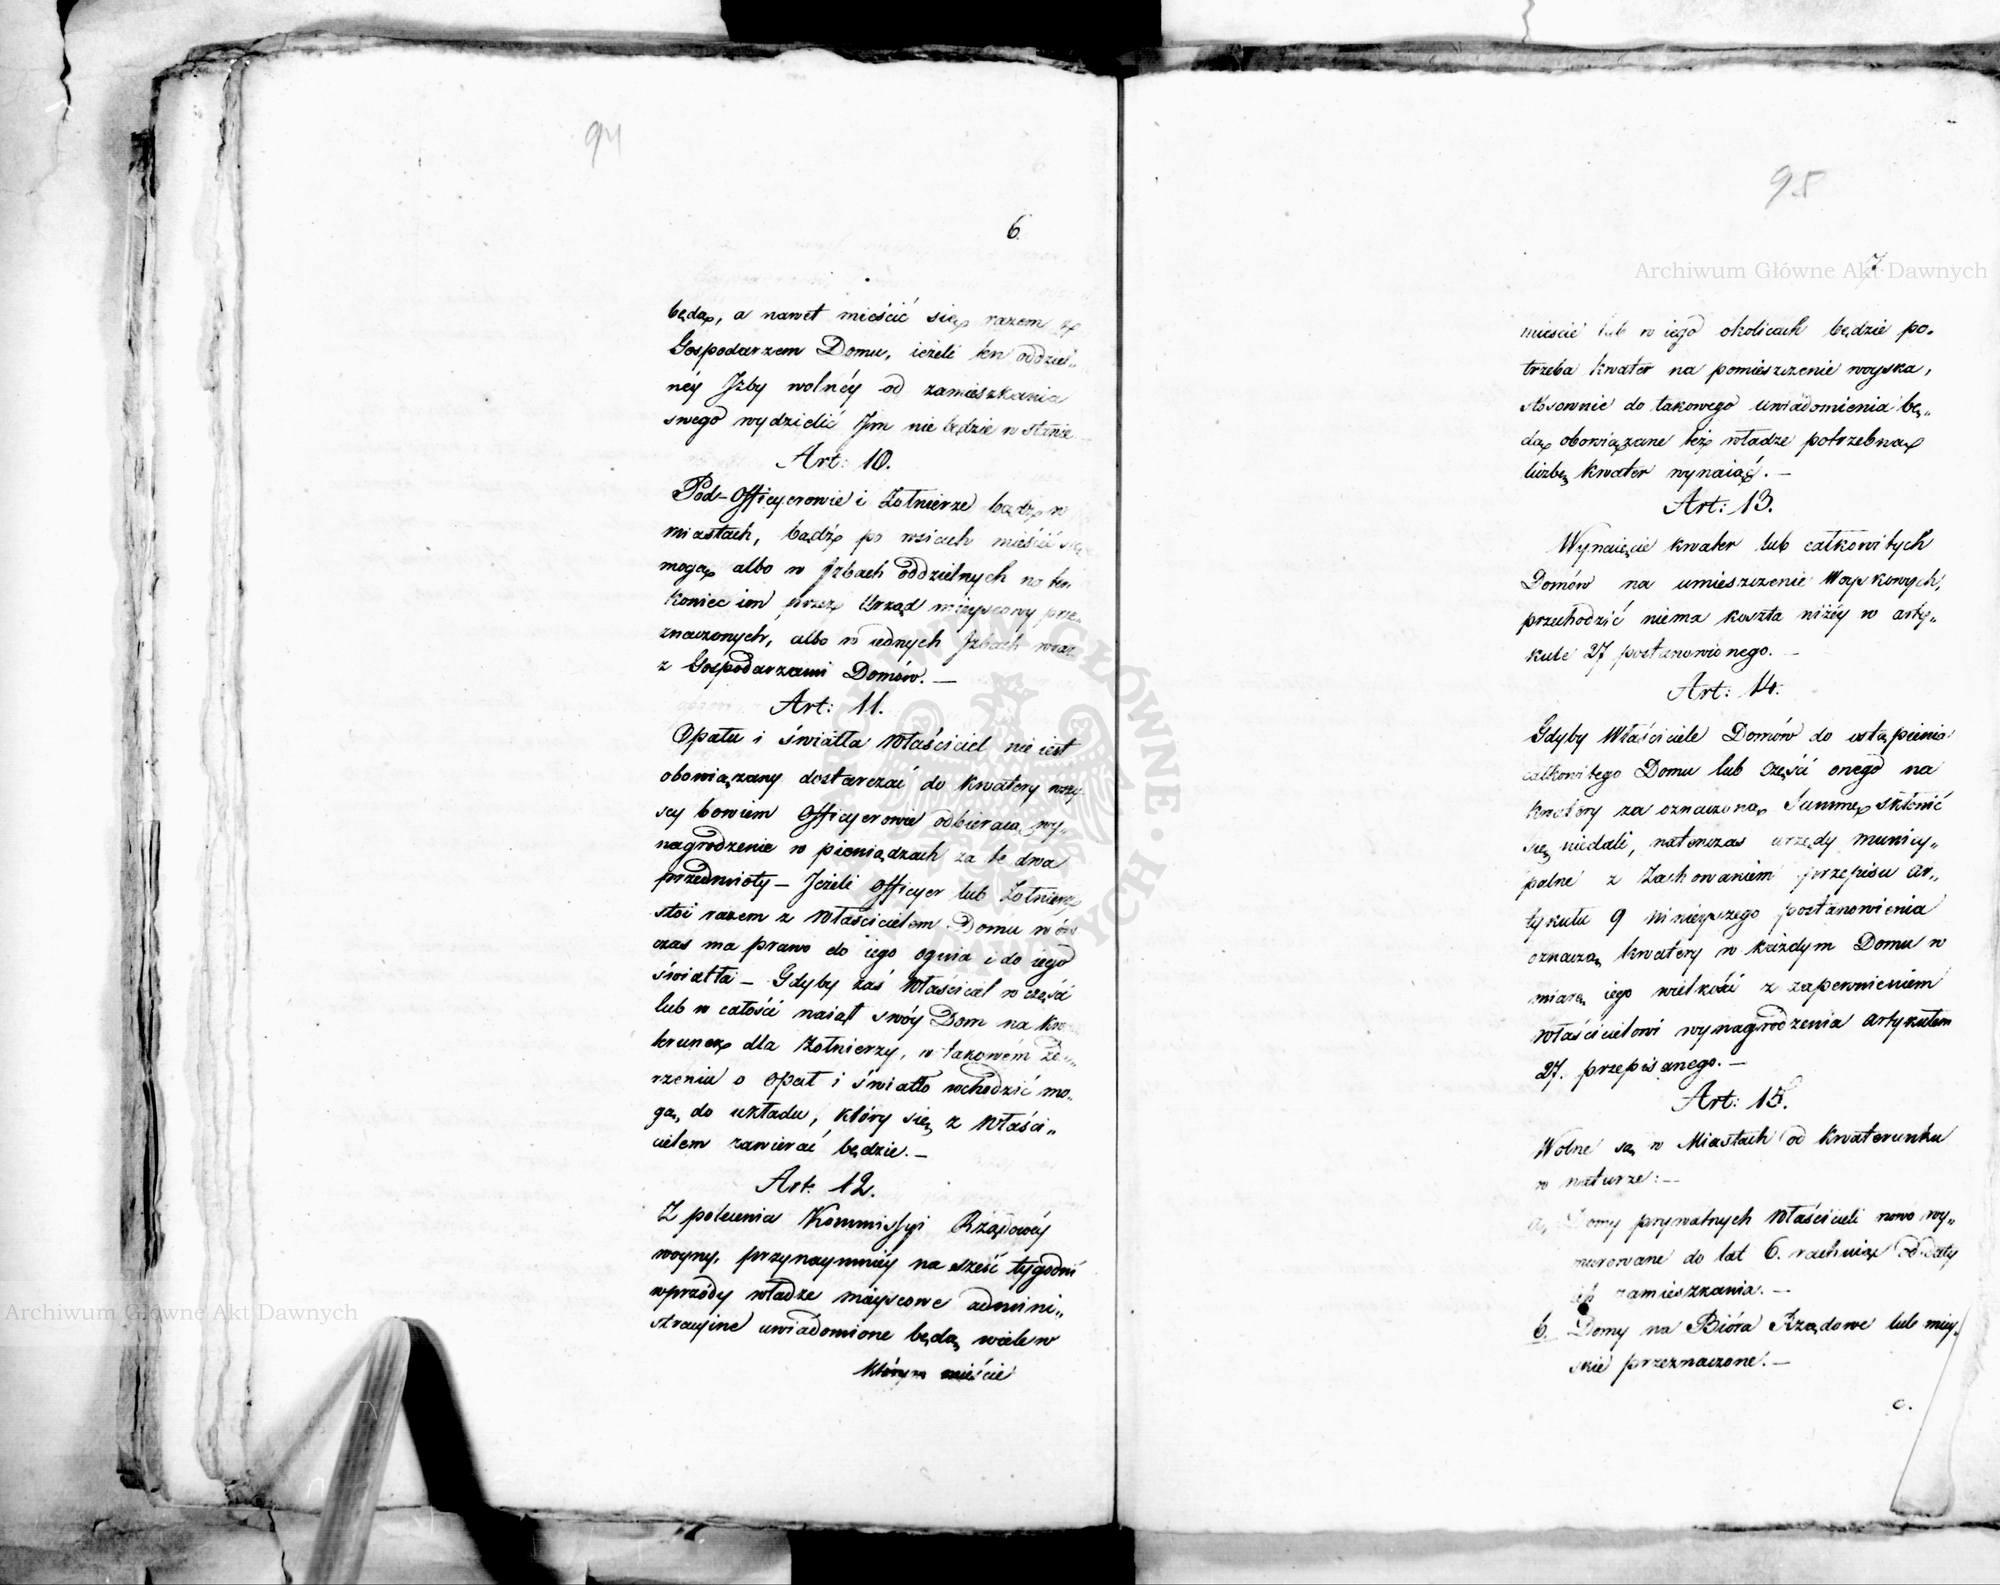 94
6.
będą, a nawet mieścić się razem z
Gospodarzem Domu, ieżeli ten oddziel„
néy Jzby wolnéy od zamieszkania
swego wydzielić Jm nie będzie w stanie
Art: 10.
Pod-Officyerowie i Żołnierze bądź w
miastach, bądź po wsiach mieścić się
mogą albo w Jzbach oddzielnych na ten
koniec im przez Urząd mieyscowy prze„
znaczonych, albo w iednych Jzbach wraz
z Gospodarzami Domów. —
Art: 11.
Opału i światła Właściciel nie iest
obowiązany dostarczać do kwatery wszy
scy bowiem Officyerowie odbieraią wy„
nagrodzenie w pieniądzach za te dwa
przedmioty — Jeżeli Officyer lub Żołnierz
stoi razem z Właścicielem Domu wów
czas ma prawo do iego ognia i do iego
światła — Gdyby zaś Właściciel w części
lub w całości naiął swóy Dom na kwa
terunek dla Żołnierzy, w takowém zda„
rzeniu o opał i światło wchodzić mo„
gą, do układu, który się z Właści„
cielem zawierać będzie. —
Art: 12.
Z polecenia Kommissyi Rządowéy
woyny, przynaymniéy na sześć tygodni
wprzódy władze mieyscowe admini„
stracyine uwiadomione będą, wiele w
którym mieście
95
7
mieście lub w iego okolicach będzie po„
trzeba kwater na pomieszczenie woyska,
stosownie do takowego uwiadomienia bę„
dą obowiązane też władze potrzebną
liczbę kwater wynaiąć. —
Art: 13.
Wynaięcie kwater lub całkowitych
Domów na umieszczenie Woyskowych,
przechodzić niema koszta niżéy w arty„
kule 27 postanowionego. —
Art: 14.
Gdyby Właściciele Domów do ustąpienia
całkowitego Domu lub części onego na
kwatery za oznaczoną Summę skłonić
się niedali, natenczas urzędy municy„
palne z Zachowaniem przepisu ar„
tykułu 9 niniejszego postanowienia
oznaczą kwatery w każdym Domu w
miarę iego wielkości z zapewnieniem
Właścicielowi wynagrodzenia artykułem
27. przepisanego. —
Art: 15.
Wolne są w Miastach od kwaterunku
w naturze: —
a, Domy prywatnych Właścicieli nowo wy„
murowane do lat 6. rachuiąc od daty
ich zamieszkania. —
b. Domy na Bióra Rządowe lub miey„
skie przeznaczone. —
c.
Archiwum Główne Akt Dawnych
Archiwum Główne Akt Dawnych